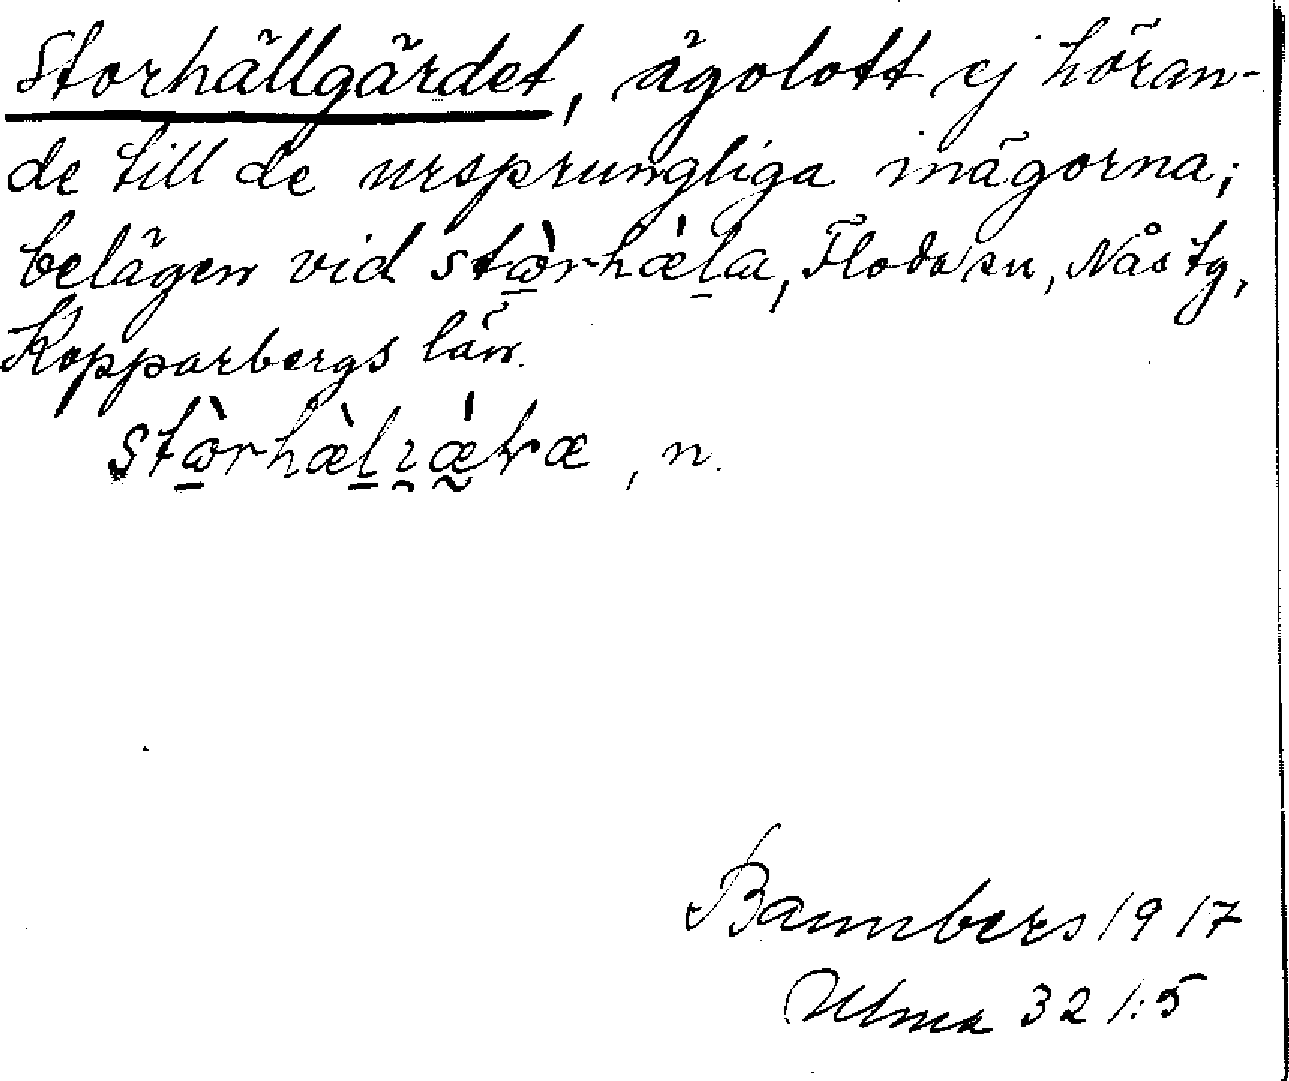 Storhällgärdet, ägolott ej höran-
de till de ursprungliga inägorna;
belägen vid stòrhæ̀la, Floda sn, Nås tg,
Kopparbergs län.
, n.
1917
Ulma 321:5